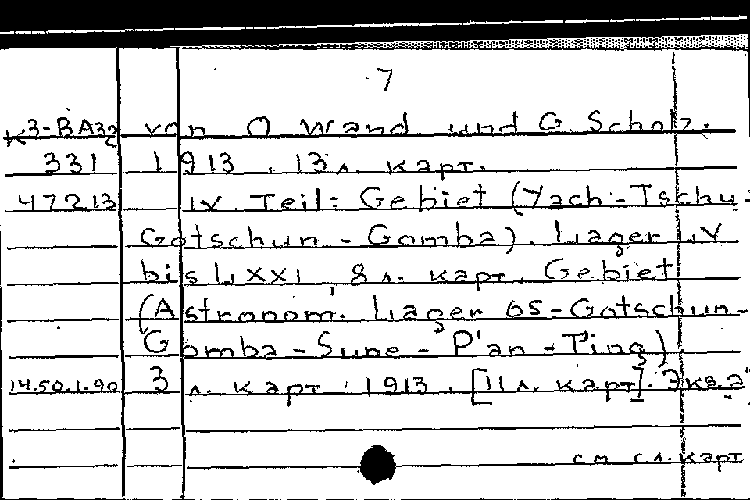 7
К3-ВА32 von O Wand und G. Scholz.
331 1913. 13 л. карт.
47213 IV. Teil: Gebiet (Yach-Tschu-
Gotschun-Gomba). Lager LIV
bis LXXI, 8 л. карт. Gebiet
(Astronom. Lager 65-Gotschun-
Gomba-Sune-P'an-T'ing)
14.50.1.90 3 л. карт. 1913. [11 л. карт]. Экз.2
см. сл. карт